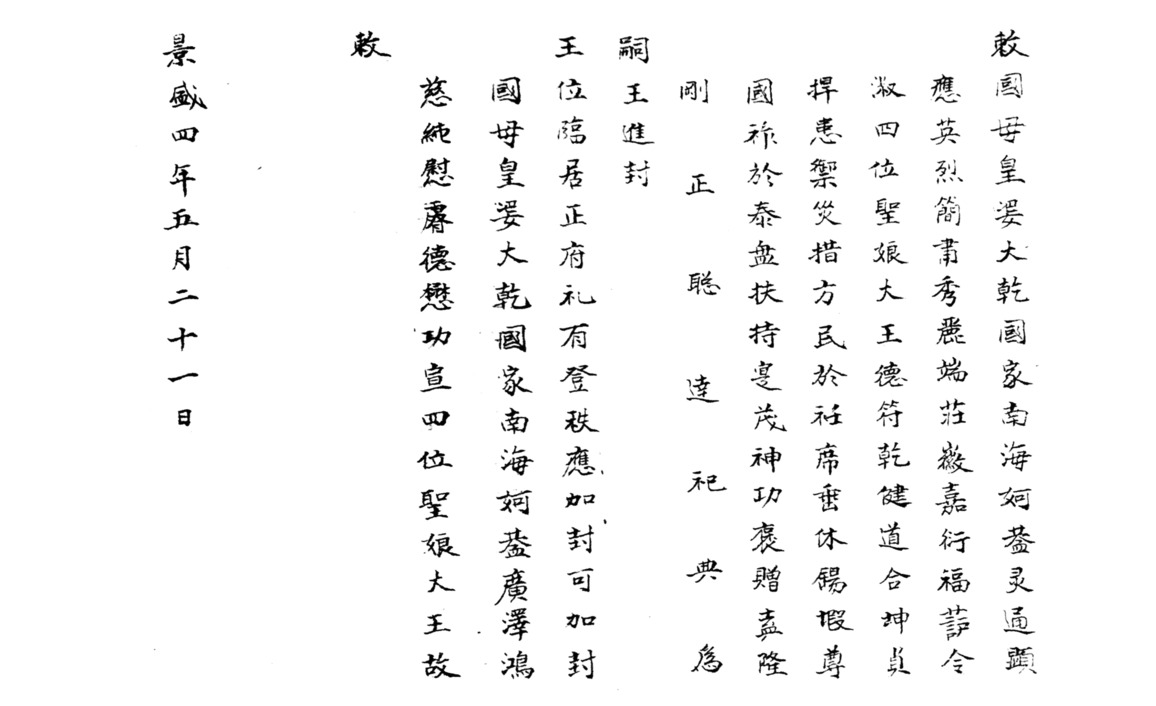 敕國母皇婆大乾國家南海妸𦬼灵通顯
應英烈簡肅秀麗端莊徽嘉衍福䕶令
淑四位聖娘大王德符乾健道合坤貞
捍患禦災措方民於衽席垂休錫嘏尊
國祚於泰盘扶持寔茂神功褒贈益隆
剛正聡達祀典為
嗣王進封
王位臨居正府礼有登秩應加封可加封
國母皇婆大乾國家南海妸𦬼廣澤鴻
慈純慰睿德懋功宣四位聖娘大王故
敕
景盛四年五月二十一日